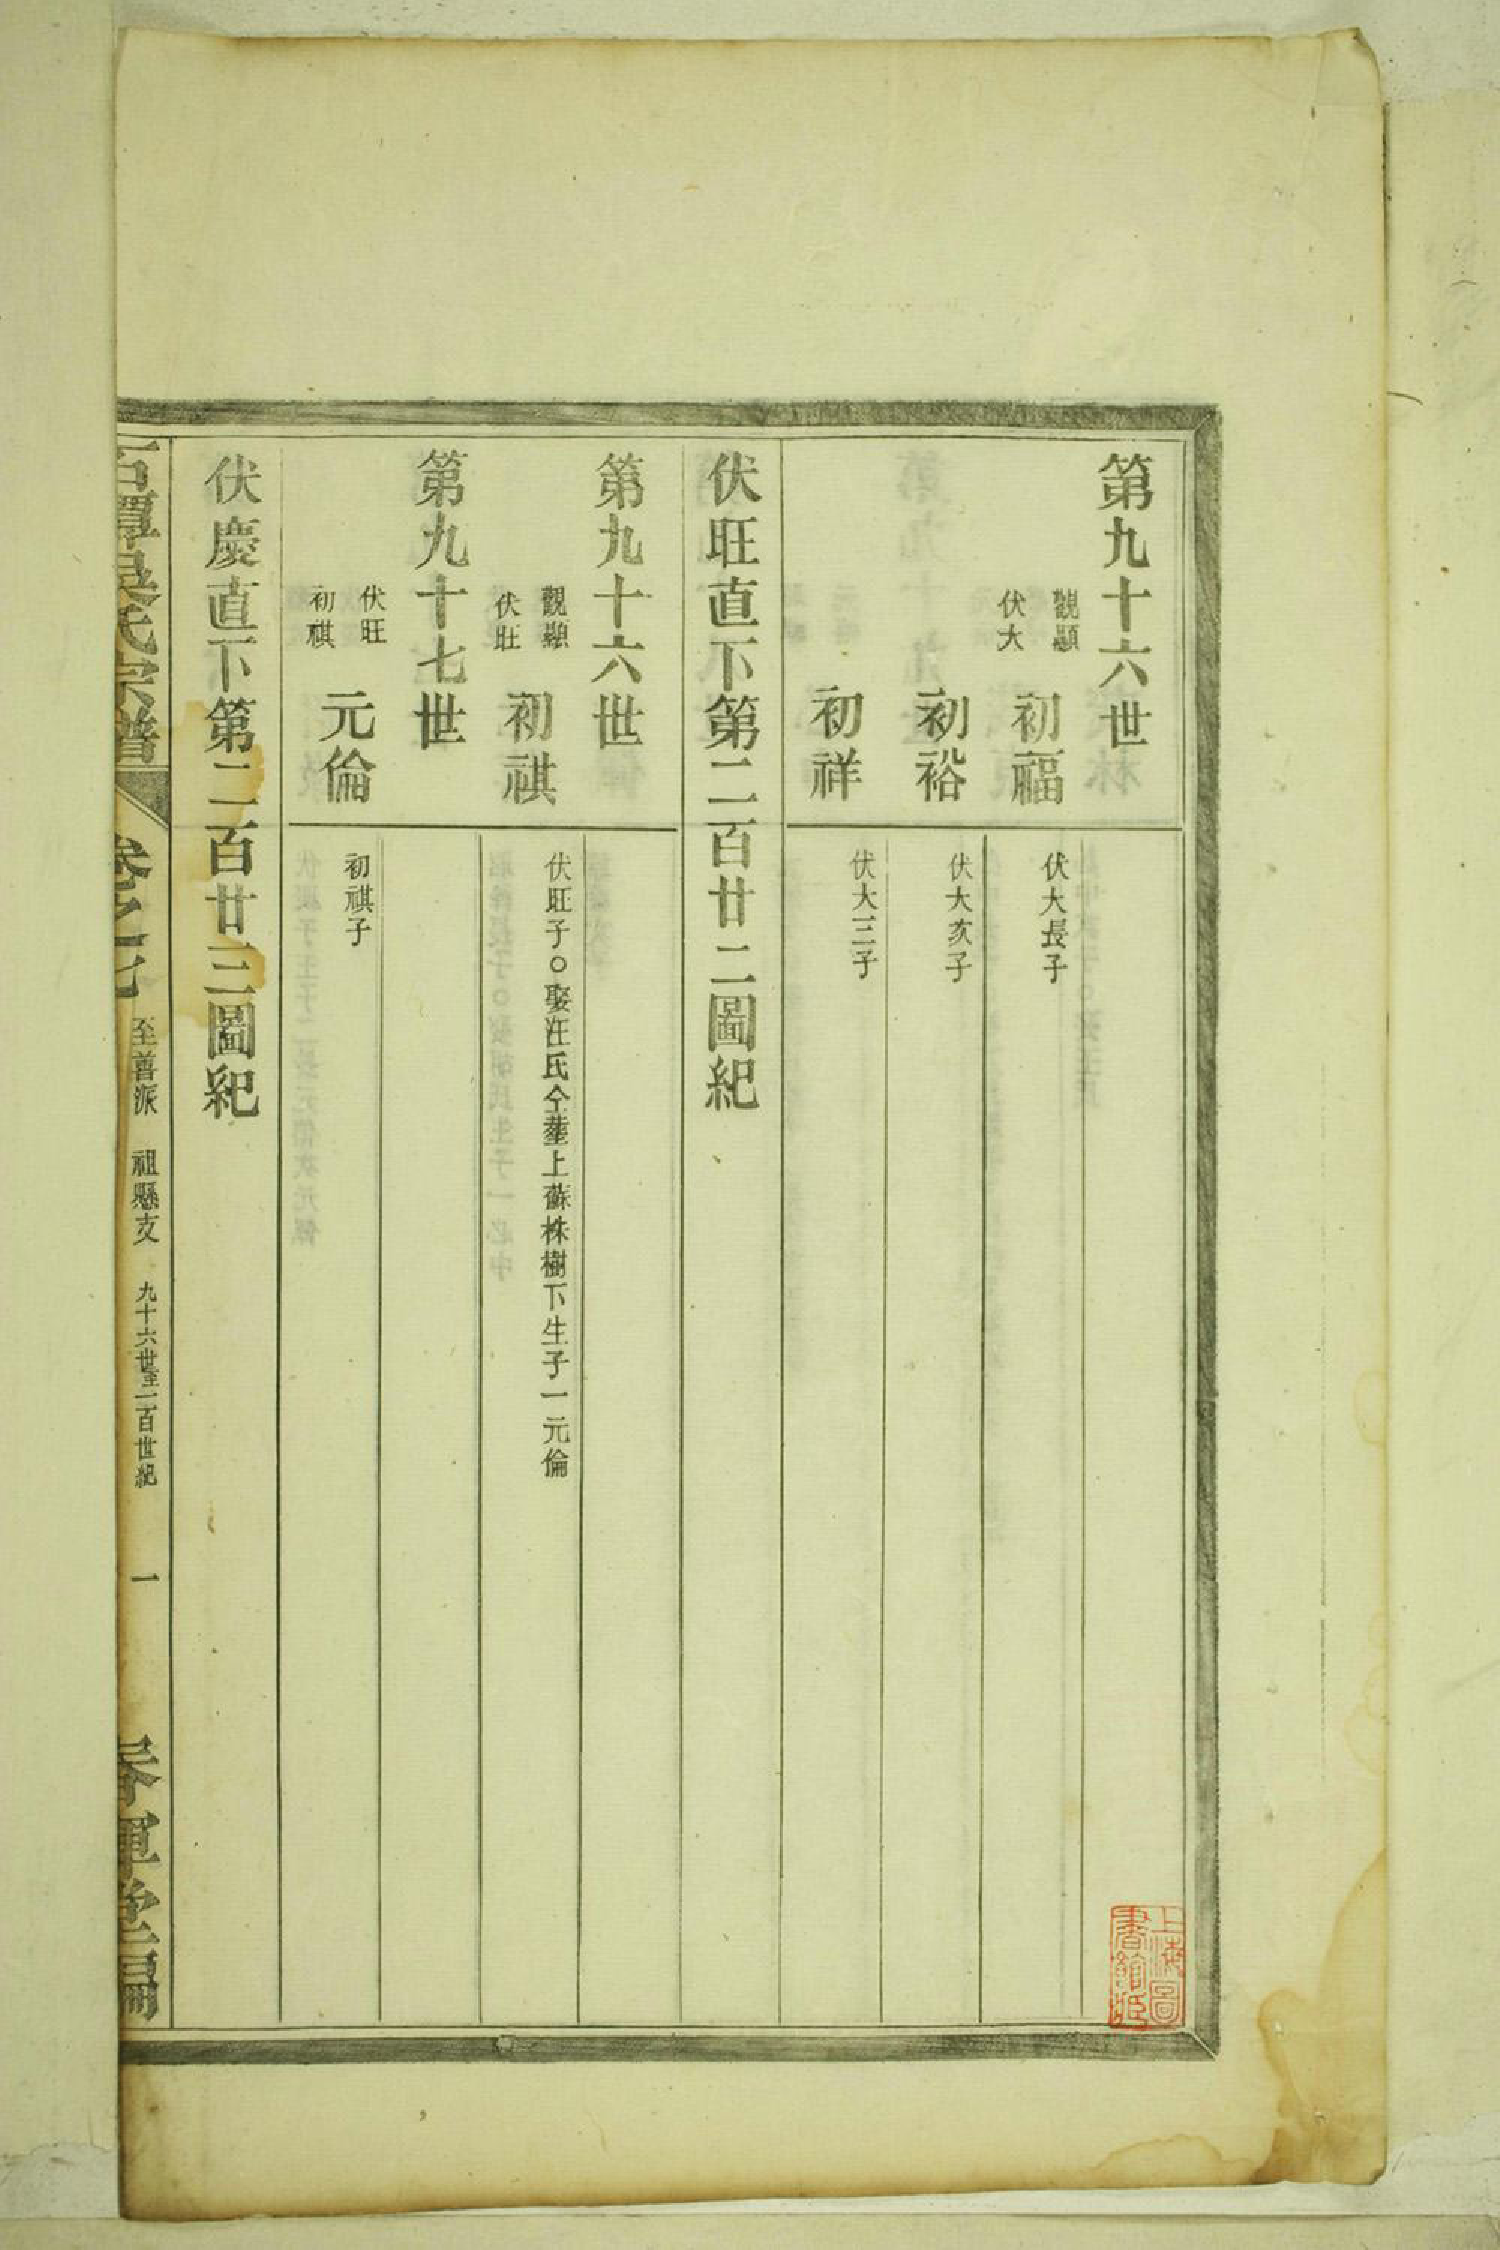 第九十六世
觀顯
伏大
初福
伏大長子
初裕
伏大次子
初祥
伏大三子
伏旺直下第二百廿二圖紀
第九十六世
觀顯
伏旺
初祺
伏旺子○娶汪氏仝塟上蘇株樹下生子一元倫
第九十七世
伏旺
初祺
元倫
初祺子
伏慶直下第二百廿三圖紀
石潭吳氏宗譜
卷之七
至善派 祖懸支 九十六世至一百世紀
一
春暉堂編
上海圖
書館藏